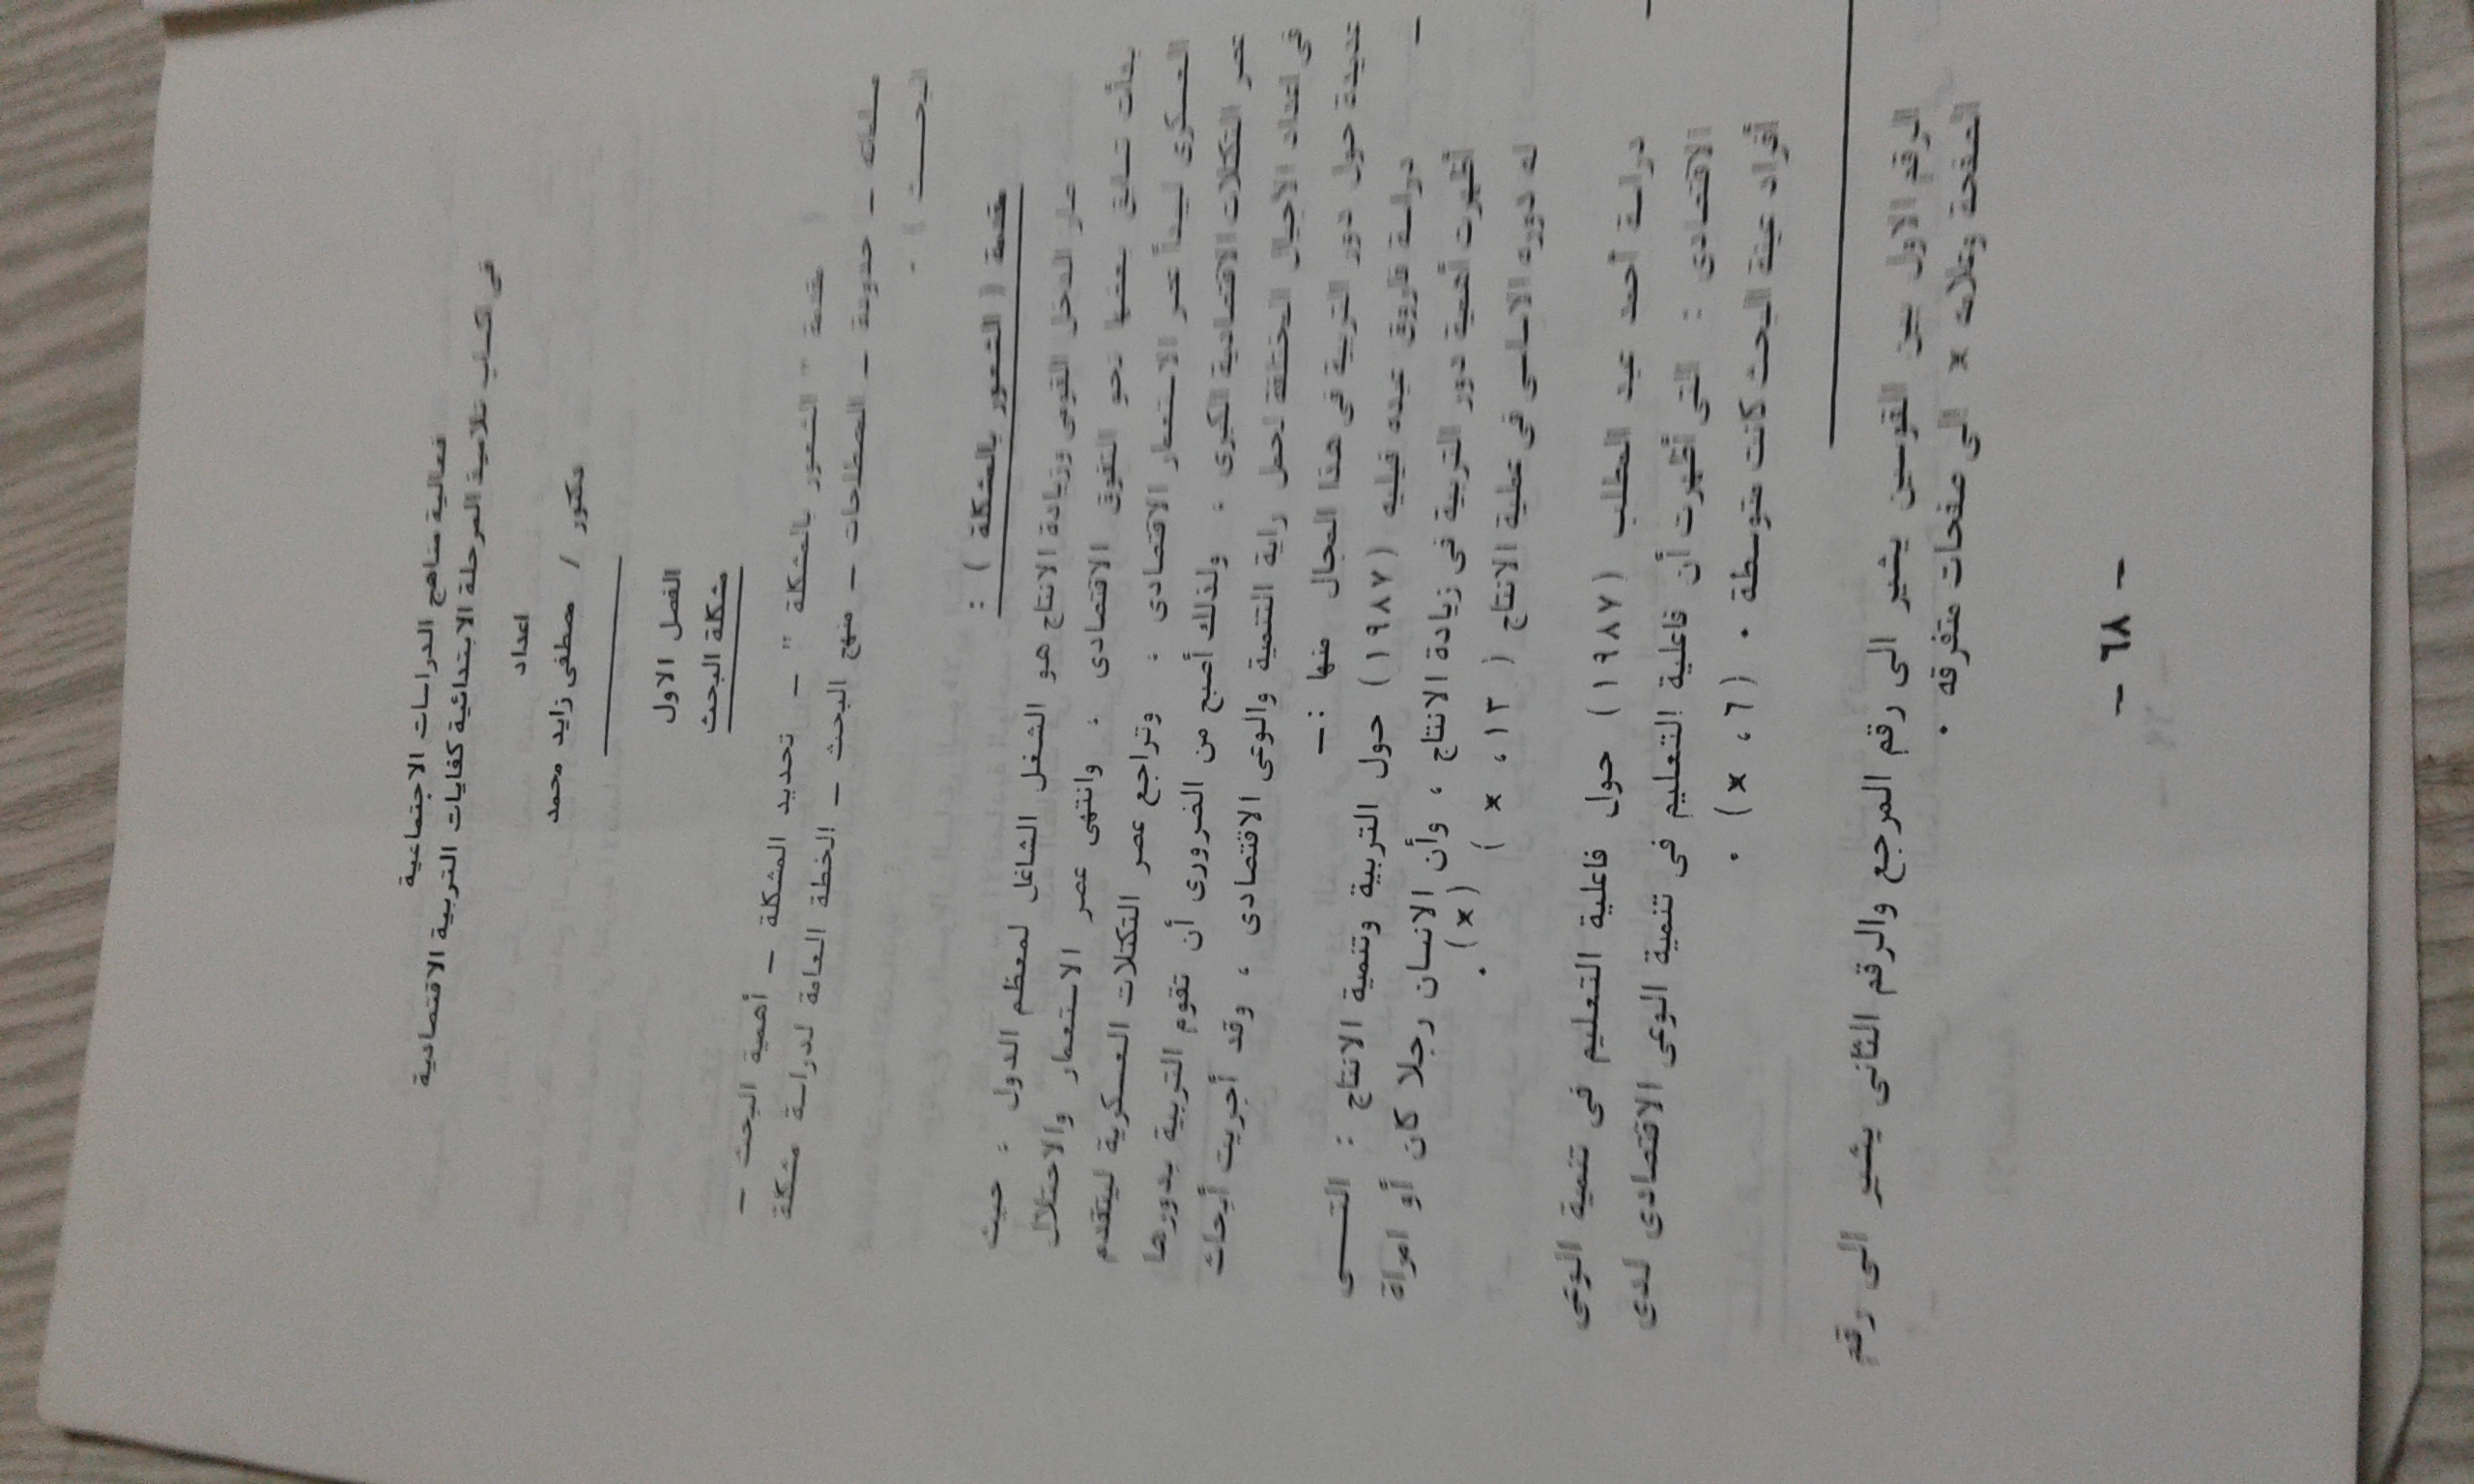 فعالية مناهج الدراسات الاجتماعية
في اكساب تلاميذ المرحلة الابتدائية كفايات التربية الاقتصادية
اعداد
دكتور / مصطفى زايد محمد
الفصل الاول
مشكلة البحث
مقدمة " الشعور بالمشكلة " - تحديد المشكلة - أهمية البحث -
مسلماته - حدوده - المصطلحات - منهج البحث - الخطة العامة لدراسة مشكلة
البحث ) .
مقدمة ( الشعور بالمشكلة ) :
صار الدخل القومى وزيادة الانتاج هو الشغل الشاغل لمعظم الدول ، حيث
بدأت تتسابق بعضها نحو التفوق الاقتصادى ، وانتهى عصر الاستعمار والاحتلال
العسكرى ليبدأ عصر الاستعمار الاقتصادى ، وتراجع عصر التكتلات العسكرية ليتقدم
عصر التكتلات الاقتصادية الكبرى ، ولذلك أصبح من الضرورى أن تقوم التربية بدورها
فى اعداد الاجيال المختلفة لحمل راية التنمية والوعى الاقتصادى ، وقد أجريت أبحاث
عديدة حول دور التربية فى هذا المجال منها :-
- دراسة فاروق عبده فليه (١٩٨٧) حول التربية وتنمية الانتاج : التى
أظهرت أهمية دور التربية فى زيادة الانتاج ، وأن الانسان رجلا كان أو امرأة
له دوره الاساسى فى عملية الانتاج ( ١٣ ، × ) (×) .
- دراسة أحمد عبد المطلب (١٩٨٧) حول فاعلية التعليم فى تنمية الوعى
الاقتصادى : التى أظهرت أن فاعلية التعليم فى تنمية الوعى الاقتصادى لدى
أفراد عينة البحث كانت متوسطة . (٦ ، ×) .
الرقم الاول بين القوسين يشير الى رقم المرجع والرقم الثانى يشير الى رقم
الصفحة وعلامه × الى صفحات متفرقه .
- ٦٨ -